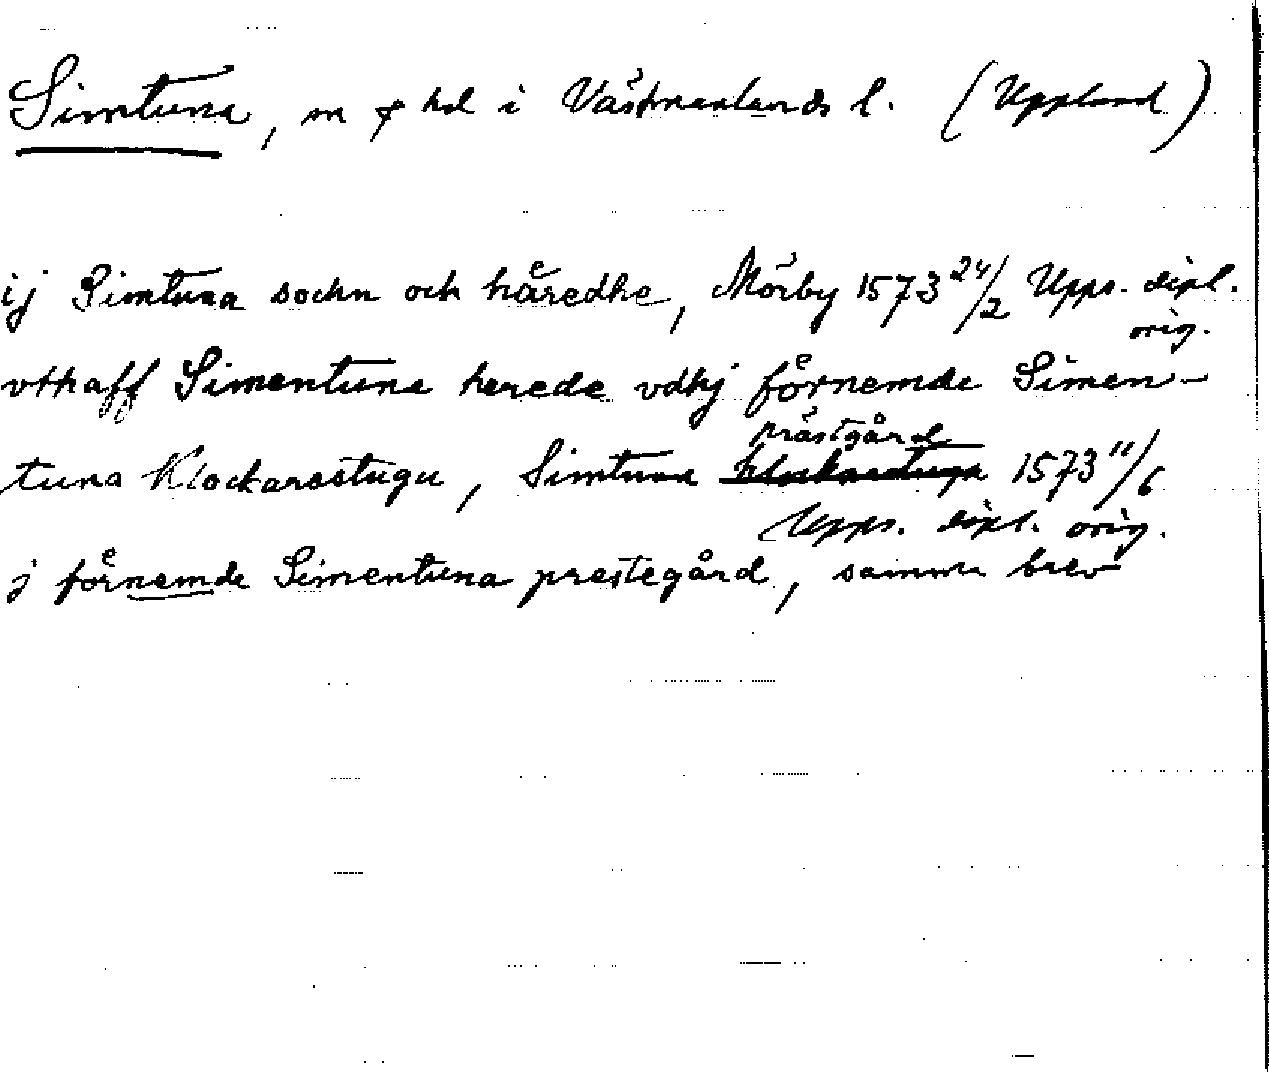 Simtuna, sn & hd i Västmanlands l. (Uppland)
ij Simtuna sochn och håredhe, Mörby 1573 24/2 Upps. dipl.
orig.
vthaff Simentuna herede vdhj förnemde Simen-
tuna Klockarastugu, Simtuna prästgård 1573 11/6
Upps. dipl. orig.
j förnemde Simentuna prestegård, samma brev